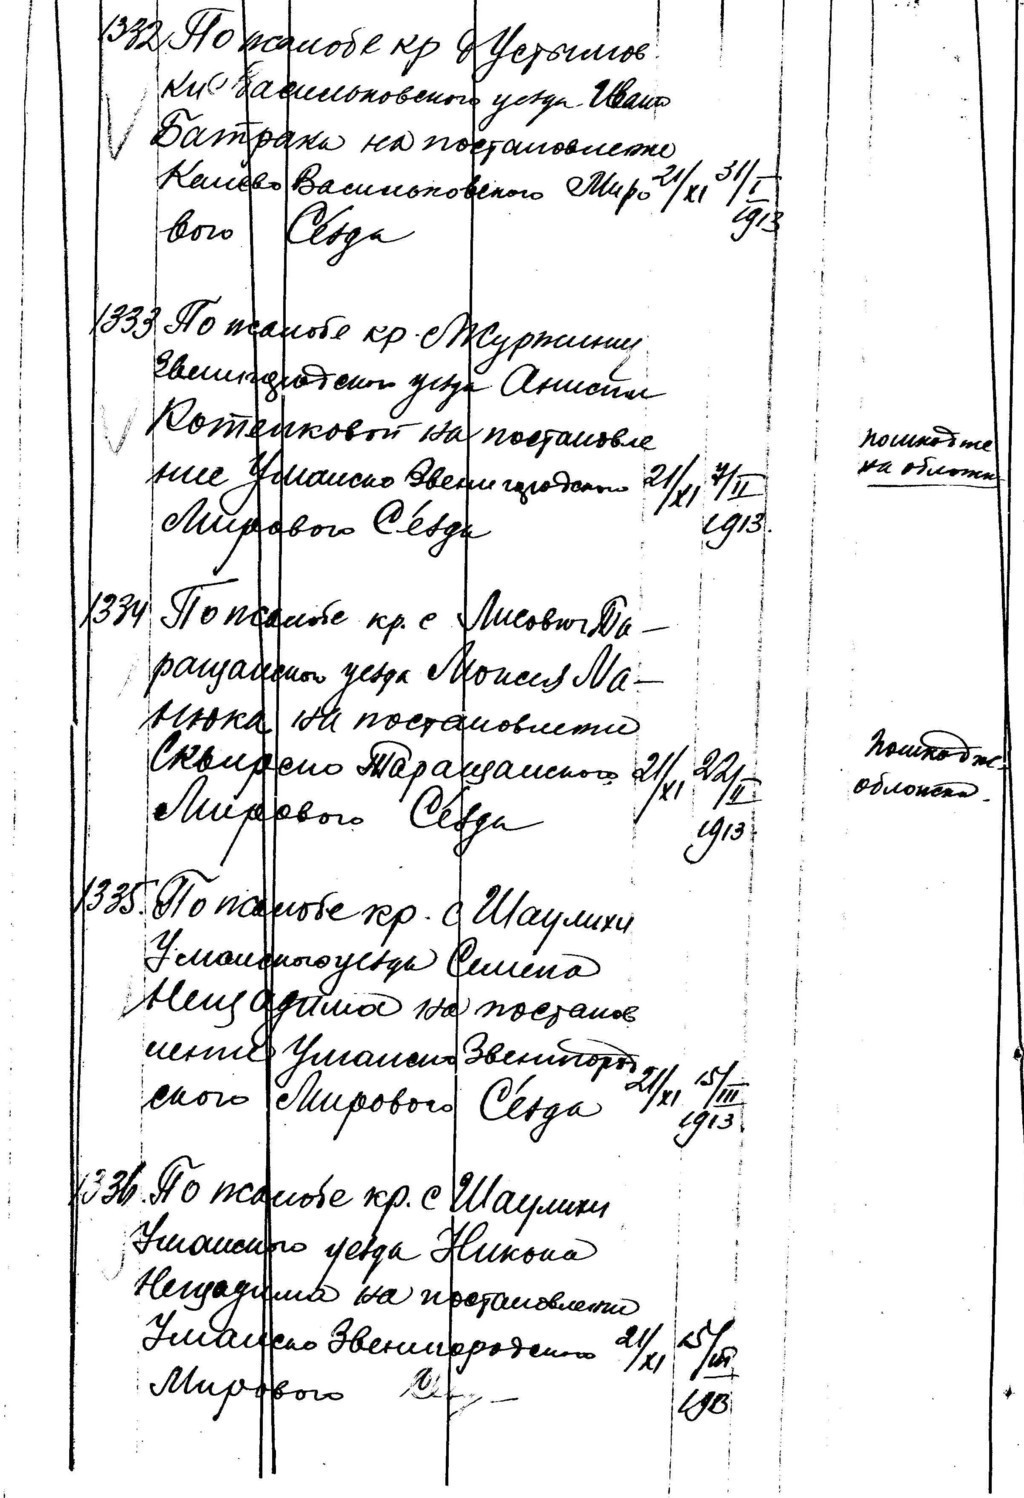 1332 По жалобе кр д Устымов
ки Васильковского уезда Ивана
Батрака на постановление
Киево Васильковского Миро 21/XI 31/I
вого Съезда 1913
1333 По жалобе кр. с Журжинцы
Звенигородского уезда Анисии
Котенковой на постановле
ние Уманско Звенигородского 21/XI 7/II
Мирового Съезда 1913.
пошкодже
на обложк
1334 По жалобе кр. с Лисович Та-
ращанского уезда Моисея Ма-
нюка на постановление
Сквирско Таращанского 21/XI 22/II
Мирового Съезда 1913
Пошкодже-
обложка.
1335. По жалобе кр. с Шаулихи
Уманского уезда Семена
Нещадима на постанов
ление Уманско Звенигород
ского Мирового Съезда 21/XI 15/III
1913
1336. По жалобе кр. с Шаулихи
Уманского уезда Никона
Нещадима на постановление
Уманско Звенигородского 21/XI 15/III
Мирового 1913